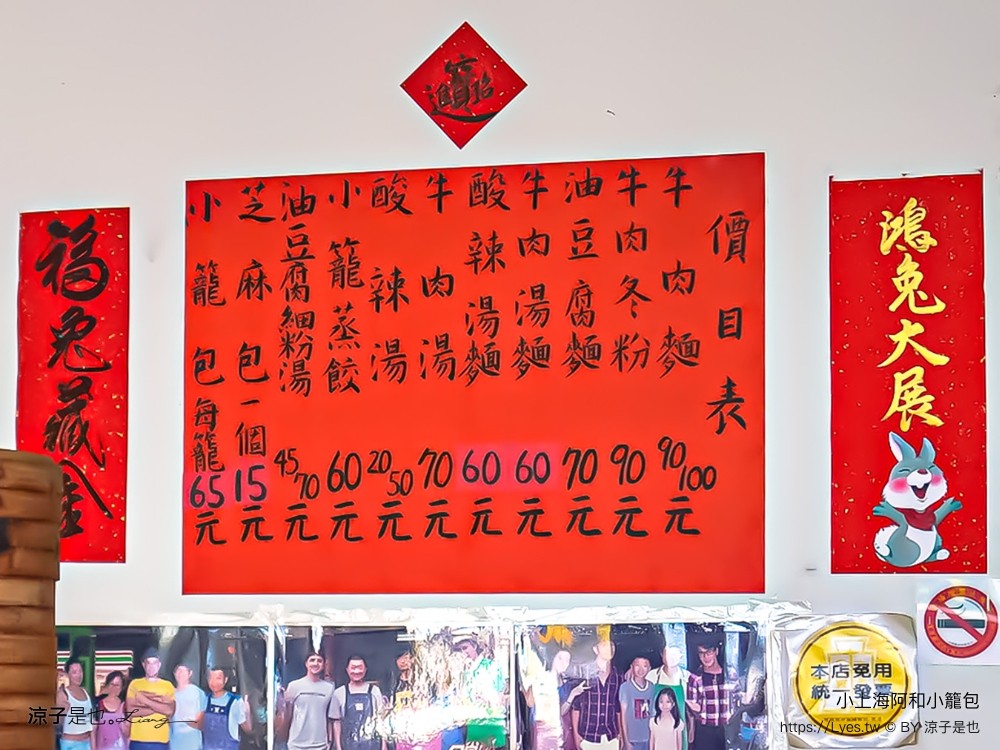 招財進寶
價目表
牛肉麵 90/100元
牛肉冬粉 90元
油豆腐麵 70元
牛肉湯麵 60元
酸辣湯麵 60元
牛肉湯 70元
酸辣湯 20/50元
小籠蒸餃 60元
油豆腐細粉湯 45/70元
芝麻包一個 15元
小籠包每籠 65元
鴻兔大展
福兔藏金
本店免用
統一發票
小上海阿和小籠包
https://Lyes.tw © BY 涼子是也
涼子是也。Liang